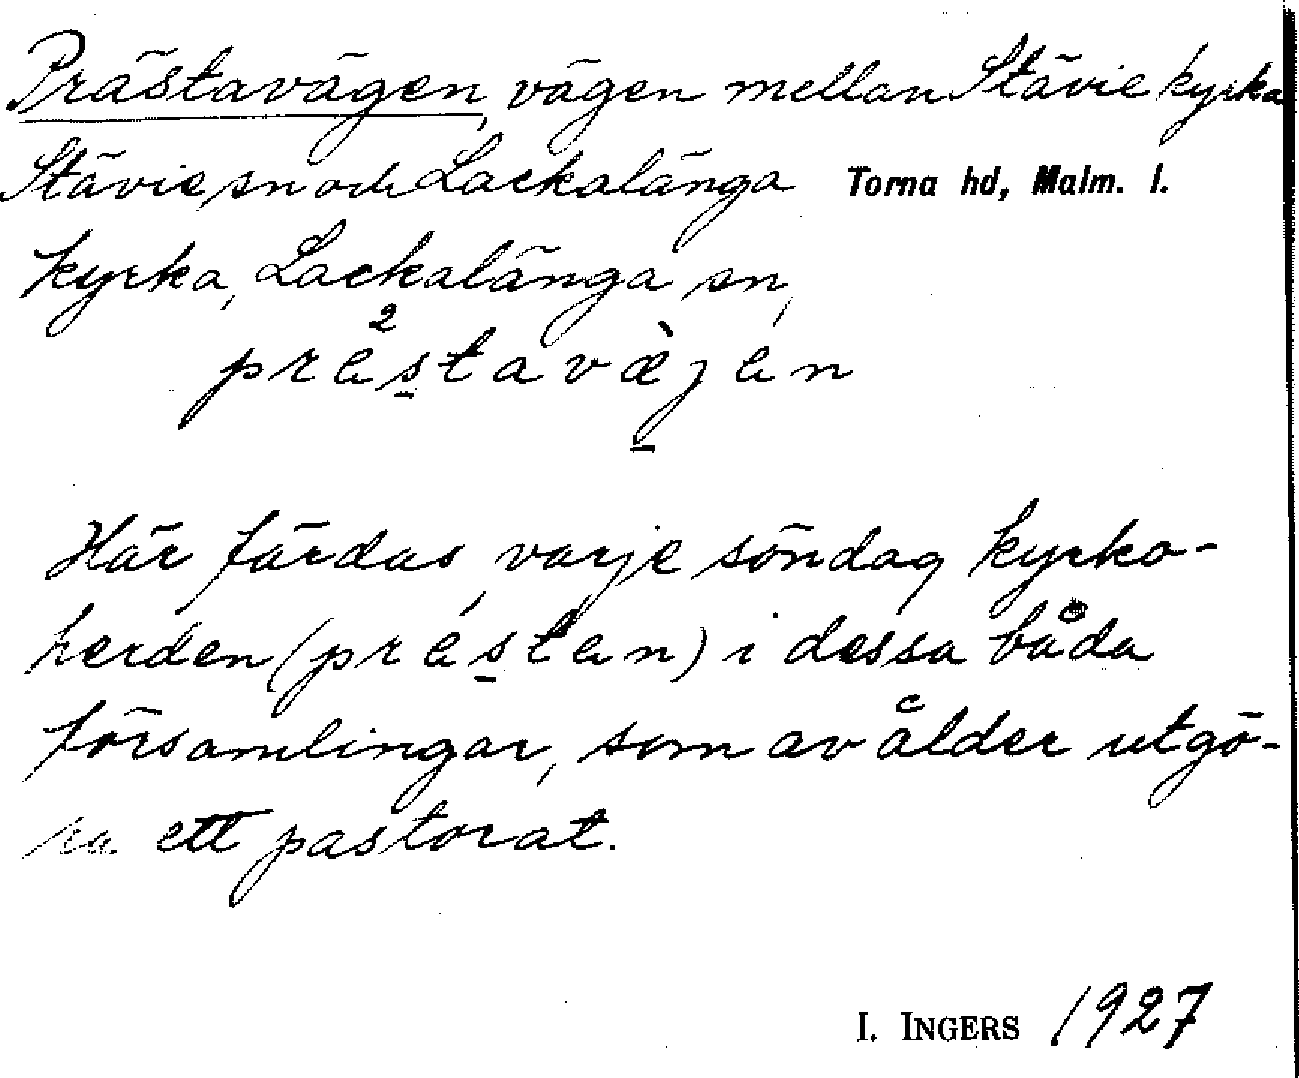 Prästavägen, vägen mellan Stävie kyrka
Stävie sn och Lackalänga Torna hd, Malm. l.
kyrka, Lackalänga sn,
Här färdas varje söndag kyrko-
herden (prästen) i dessa båda
församlingar, som av ålder utgö-
ra ett pastorat.
I. INGERS 1927